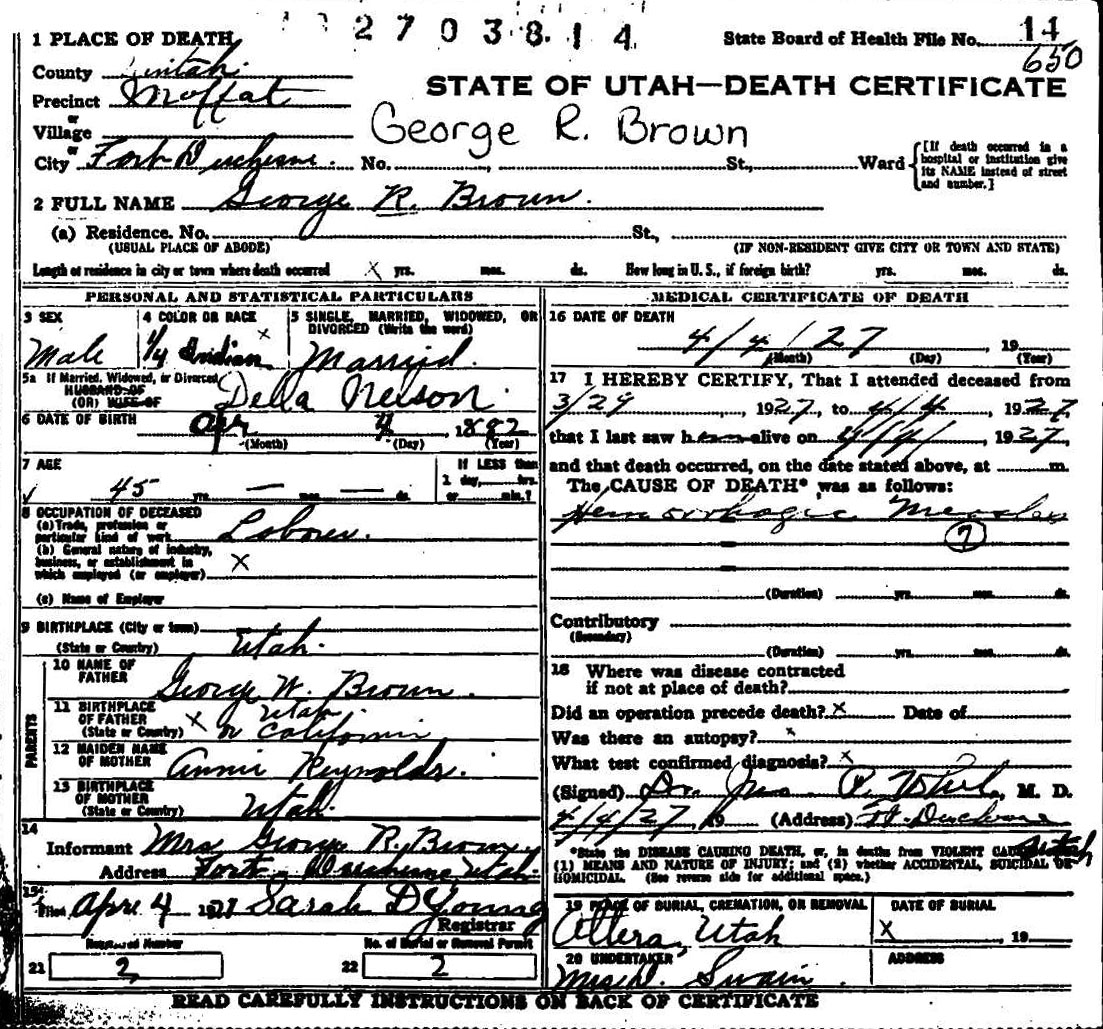 2 7 0 3 8 1 4
State Board of Health File No. 14
650
1 PLACE OF DEATH
County Uintah
STATE OF UTAH—DEATH CERTIFICATE
Precinct Moffat
or
Village
George R. Brown
or
City Fort Duchesne. No. St., Ward
[If death occurred in a hospital or institution give its NAME instead of street and number.]
2 FULL NAME George R. Brown.
(a) Residence. No. St.,
(USUAL PLACE OF ABODE) (IF NON-RESIDENT GIVE CITY OR TOWN AND STATE)
Length of residence in city or town where death occurred X yrs. mos. ds. How long in U. S., if foreign birth? yrs. mos. ds.
PERSONAL AND STATISTICAL PARTICULARS
3 SEX
Male
4 COLOR OR RACE X
1/4 Indian
5 SINGLE, MARRIED, WIDOWED, OR DIVORCED (Write the word)
Married.
5a If Married, Widowed, or Divorced
HUSBAND OF
(OR) WIFE OF
Della Nelson
6 DATE OF BIRTH Apr 4 1882
(Month) (Day) (Year)
7 AGE
45 yrs. — mos. — ds.
If LESS than
1 day, hrs.
or min.?
8 OCCUPATION OF DECEASED
(a) Trade, profession or particular kind of work Laborer.
(b) General nature of industry, business, or establishment in which employed (or employer) X
(c) Name of Employer
9 BIRTHPLACE (City or town)
(State or Country) Utah.
PARENTS
10 NAME OF FATHER George W. Brown.
11 BIRTHPLACE OF FATHER (State or Country) X Utah
or California
12 MAIDEN NAME OF MOTHER Annie Reynolds.
13 BIRTHPLACE OF MOTHER (State or Country) Utah.
14
Informant Mrs George R. Brown,
Address Fort Duchesne Utah.
15
Filed Apr 4 1927 Sarah D Young
Registrar
Registered Number
21 2
No. of Burial or Removal Permit
22 2
MEDICAL CERTIFICATE OF DEATH
16 DATE OF DEATH
4/4/27 19
(Month) (Day) (Year)
17 I HEREBY CERTIFY, That I attended deceased from
3/29, 1927, to 4/4, 1927,
that I last saw h alive on 4/4/, 1927,
and that death occurred, on the date stated above, at m.
The CAUSE OF DEATH* was as follows:
Hemorrhagic Measles
7
(Duration) yrs. mos. ds.
Contributory
(Secondary)
(Duration) yrs. mos. ds.
18 Where was disease contracted
if not at place of death?
Did an operation precede death? X Date of
Was there an autopsy? x
What test confirmed diagnosis? X
(Signed) Dr. Jno. P. , M. D.
4/4/27, 19 (Address) Ft. Duchesne
Utah
*State the DISEASE CAUSING DEATH, or, in deaths from VIOLENT CAUSES
(1) MEANS AND NATURE OF INJURY; and (2) whether ACCIDENTAL, SUICIDAL OR
HOMICIDAL. (See reverse side for additional space.)
19 PLACE OF BURIAL, CREMATION, OR REMOVAL
Utah
DATE OF BURIAL
X 19
20 UNDERTAKER
Swain.
ADDRESS
READ CAREFULLY INSTRUCTIONS ON BACK OF CERTIFICATE